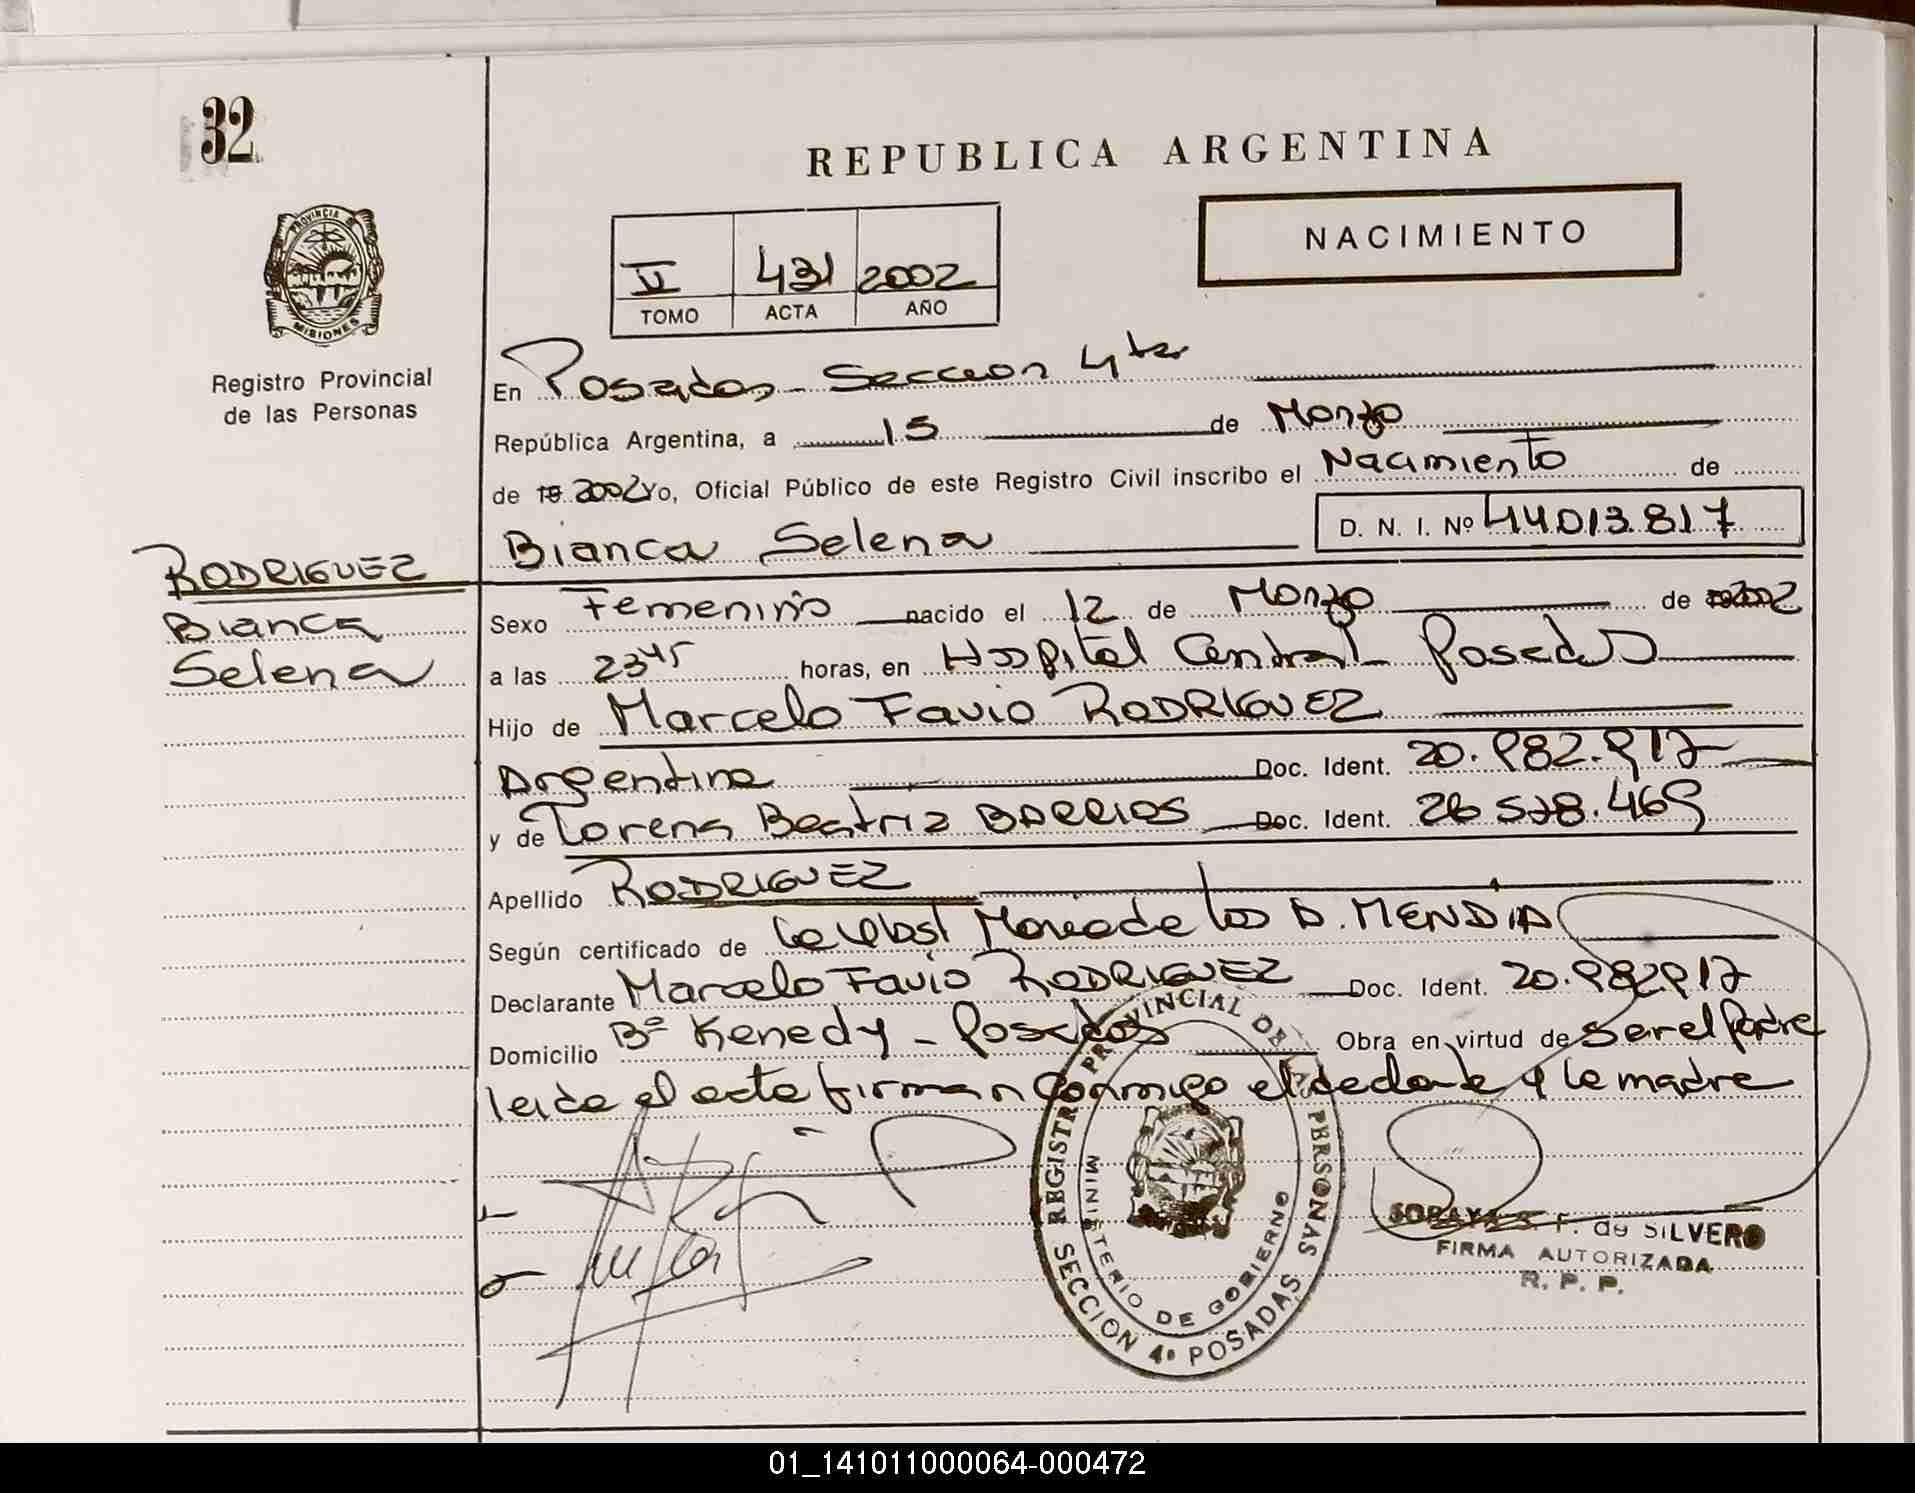 32
REPUBLICA ARGENTINA
NACIMIENTO
PROVINCIA DE MISIONES
Registro Provincial
de las Personas
II 431 2002
TOMO ACTA AÑO
En Posadas - Seccion 4ta
República Argentina, a 15 de Marzo
de 19 2002 Yo, Oficial Público de este Registro Civil inscribo el Nacimiento de
Bianca Selena D. N. I. Nº 44.013.817
RODRIGUEZ
Bianca
Selena
Sexo Femenino nacido el 12 de Marzo de 2002
a las 23 45 horas, en Hospital Central - Posadas
Hijo de Marcelo Favio RODRIGUEZ
Argentina Doc. Ident. 20.982.917
y de Lorena Beatriz BARRIOS Doc. Ident. 26 578.469
Apellido RODRIGUEZ
Según certificado de la Obst Maria de los A. MENDIA
Declarante Marcelo Favio RODRIGUEZ Doc. Ident. 20.982917
Domicilio Bº Kenedy - Posadas Obra en virtud de ser el Padre
leida el acta firman conmigo el declarante y la madre
REGISTRO PROVINCIAL DE LAS PERSONAS
MINISTERIO DE GOBIERNO
SECCION 4º POSADAS
SORAYA F. de SILVERO
FIRMA AUTORIZADA
R. P. P.
01_141011000064-000472